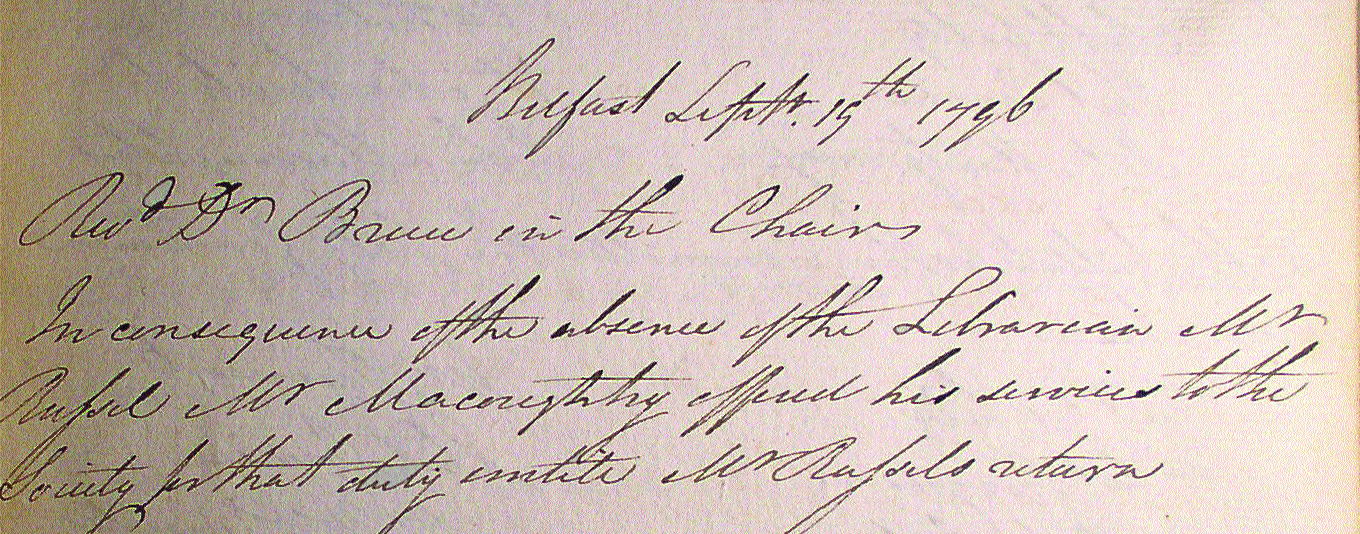 Belfast Septr. 19th 1796
Revd Dr Bruce in the Chair
In consequence of the absence of the Librarian Mr
Russel Mr Macoughtry offered his services to the
Society for that duty untill Mr Russels return